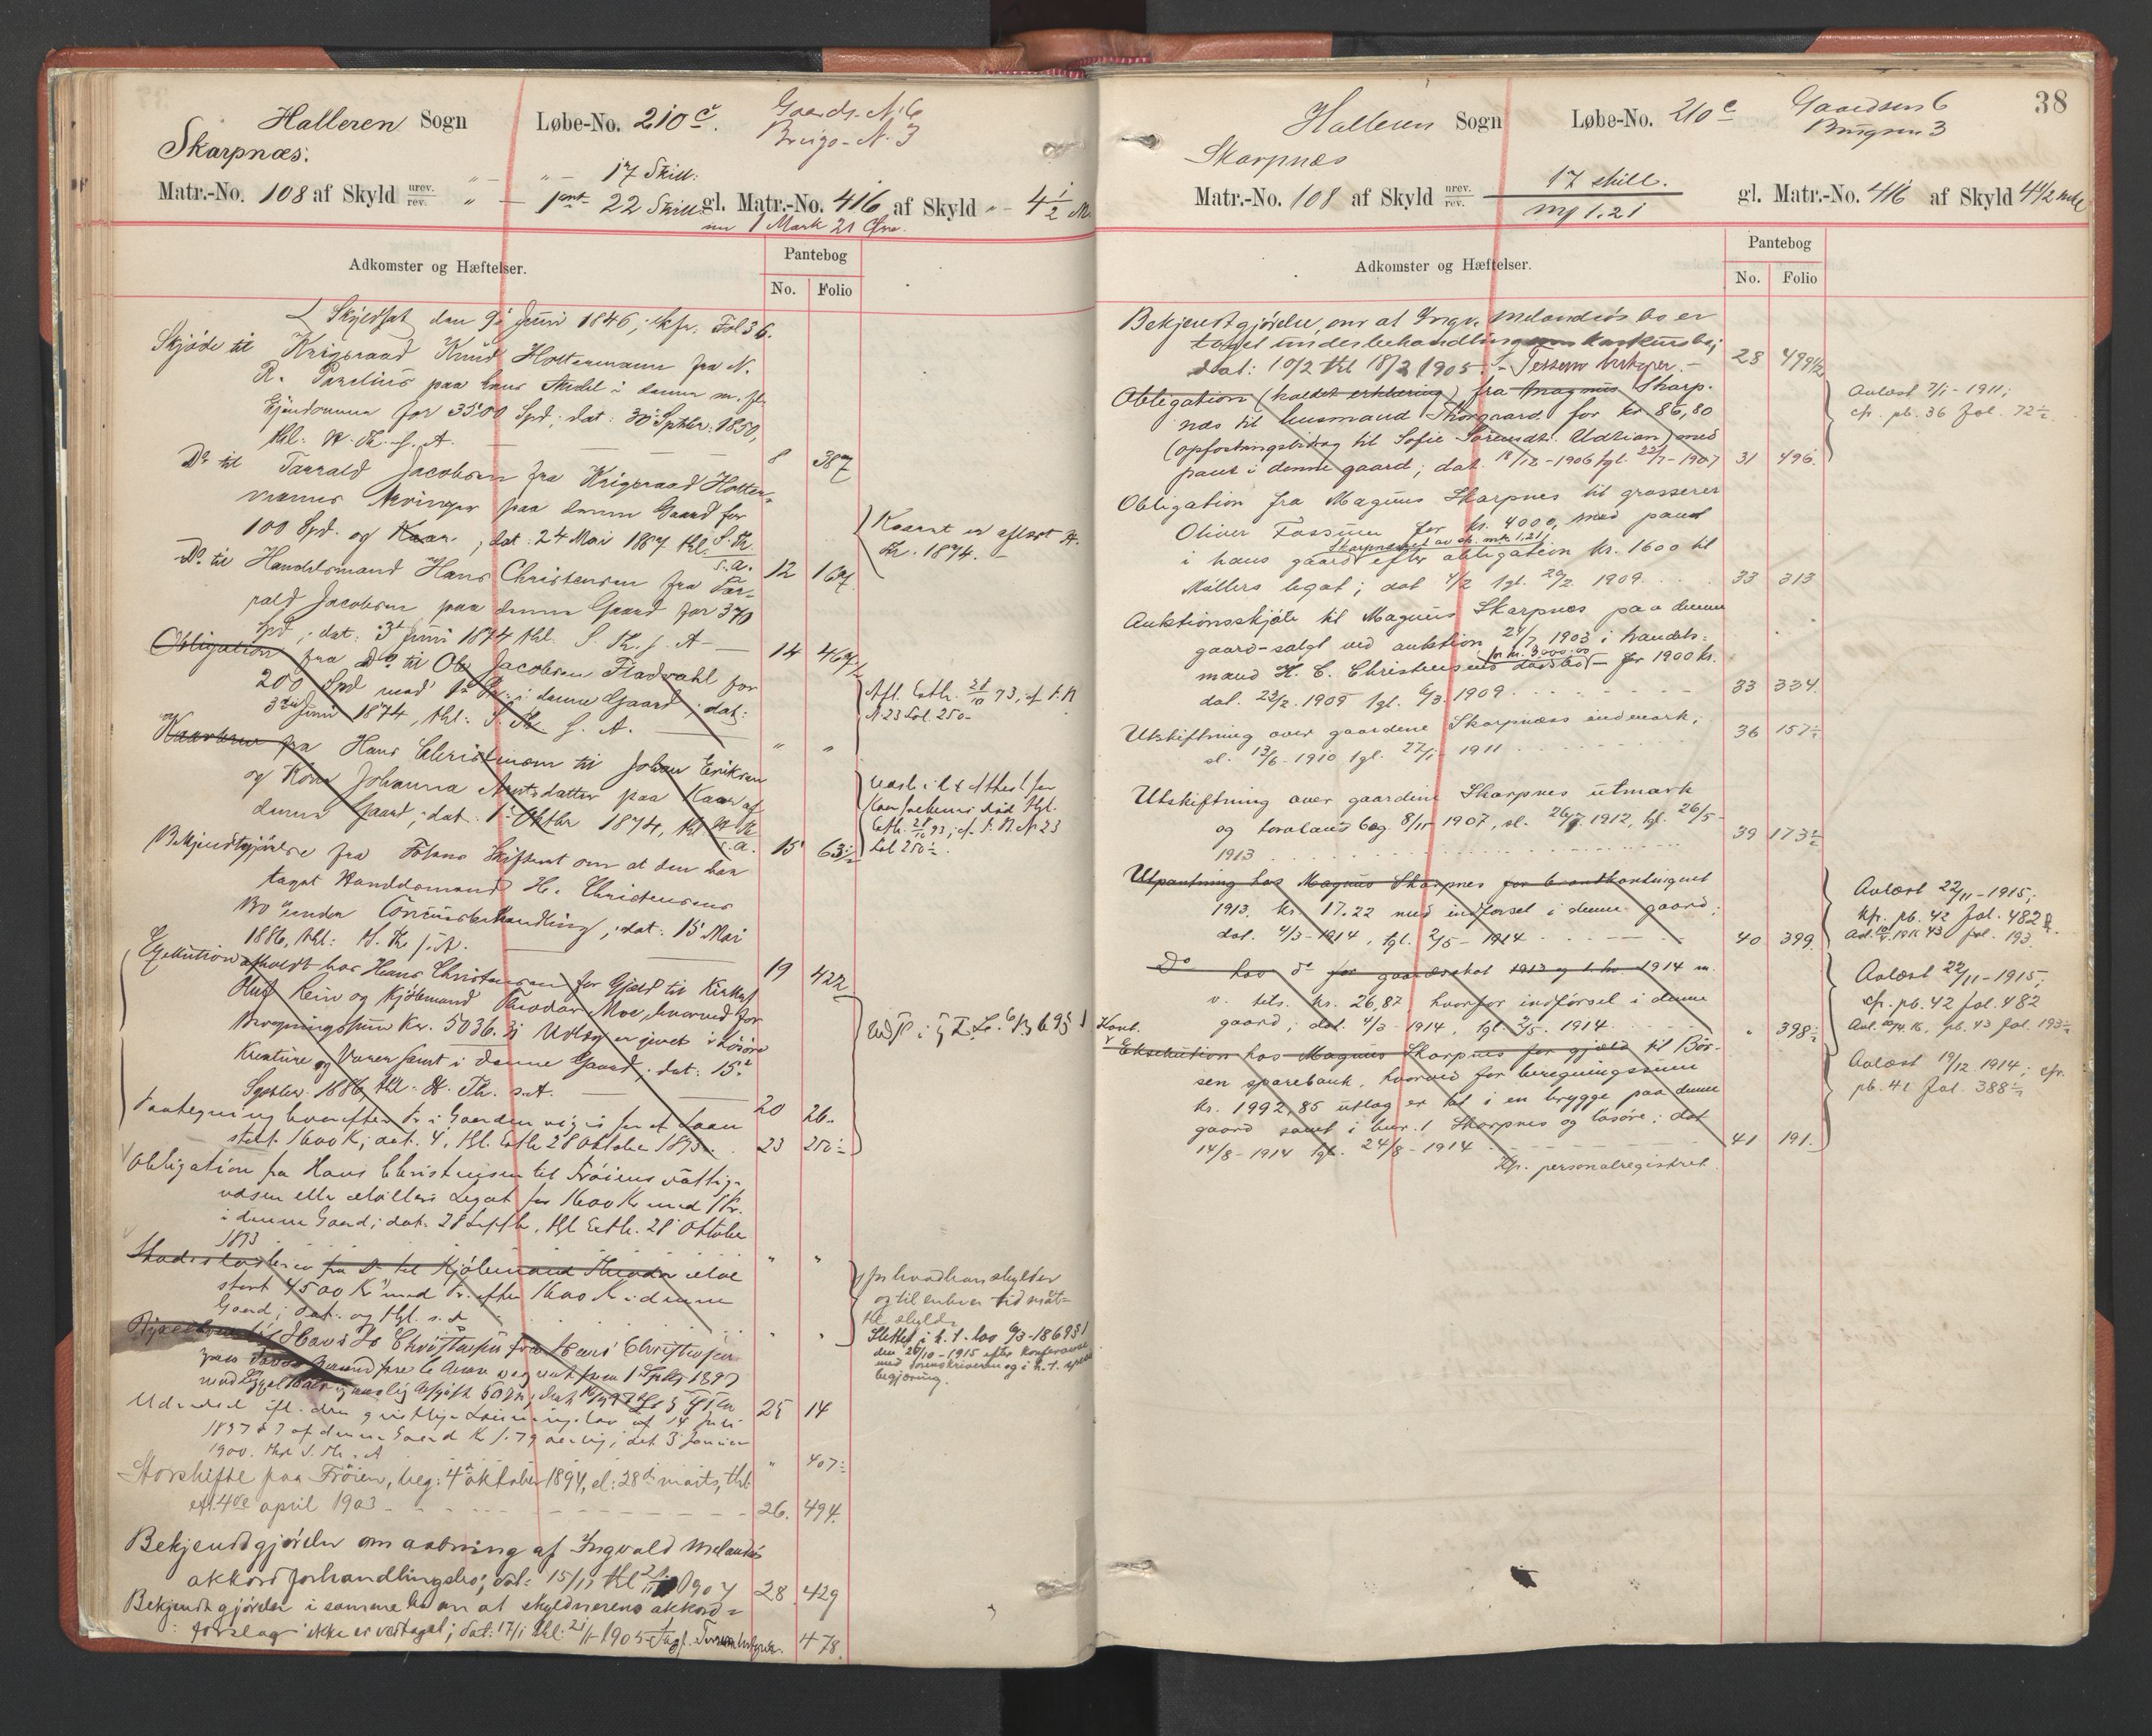 Halleren Sogn Løbe-No. 210 c. Gaards-N. 6
Skarpnæs. Brugs-N. 3
" — " — 17 Skill:
Matr.-No. 108 af Skyld urev. rev. " — 1 ort 22 Skill. gl. Matr.-No. 416 af Skyld " - 4 1/2 M.
nu 1 Mark 21 Øre.
Adkomster og Hæftelser.
Pantebog
No. Folio
Skyldsat den 9 Juni 1846; cfr. Fol 36.
Skjøde til Krigsraad Knud Holtermann fra N.
R. Parelius paa hans Andel i denne m. fl.
Ejendomme for 3500 Spd; dat: 30 Septbr: 1850,
thl. H. Th. s. A. 8 387
Do til Tarrald Jacobsen fra Krigsraad Holter-
manns Arvinger paa denne Gaard for
100 Spd. og Kaar, dat. 24 Mai 1867 thl. S. Th.
s.a. 12 167.
Kaaret er aflæst H.
Th. 1874.
Do til Handelsmand Hans Christensen fra Tar-
rald Jacobsen paa denne Gaard for 370
Spd; dat: 3 Juni 1874 thl. S. Th. s. A — 14 467 1/2
Obligation fra do til Ole Jacobsen Fladvahl for
200 Spd med 1ste Pr. i denne Gaard; dat:
3 Juni 1874, thl: S. Th. s. A. " "
Afl. Exth. 28/10 93, cf. P. B.
N. 23 Fol. 250.
Kaarbrev fra Hans Christensen til Johan Eriksen
og Kone Johanna Arntsdatter paa Kaar af
denne Gaard; dat. 1 Oktbr 1874, thl. H. Th.
s.a. 15 63 1/2
Exth. 28/10 93; cf. P. B. N. 23
Fol 250 1/2.
Bekjendtgjørelse fra Fosens Skifteret om at den har
taget Handelsmand H. Christensens
Bo under Concursbehandling; dat: 15 Mai
1886, thl: S. Th. s. A. 19 422
Exekution afholdt hos Hans Christensen for Gjæld til Kirkes.
Oluf Rein og Kjøbmand Theodor Moe, hvorved for
Beregningssum Kr. 5036.31 Udlæg er givet i Løsøre
Kreature og Varer samt i denne Gaard; dat: 15
Septbr. 1886, thl. H. Th. s. A. 20 26.
Paategning hvorefter Pr. i Gaarden viger for et Laan
stort 1600 K; dat. 4, thl. Exth 28 Oktober 1893. 23 250 1/2
Obligation fra Hans Christensen til Frøiens Fattig-
væsen eller Møllers Legat for 1600 K med 1 Pr.
i denne Gaard; dat. 28 Septbr, thl Exth. 28 Oktober
1893 " "
Skadesløsbrev fra Do til Kjøbmand Theodor Moe
stort 4500 Kr med Pr. efter 1600 K i denne
Gaard; dat. og thl. s. d " "
for hvad han skylder
og til enhver tid måt-
te skylde
Slettet i h. t. lov 6/3-1869 § 1
den 26/10-1915 efter konferanse
med sorenskriveren og i h. t. 
begjæring.
Hans Christensen fra Hans Christensen
aarlig Afgift 50 25 14
Udmaal ifl. den geistlige Løsningslov af 14 Juli
1897 § 7 af denne Gaard K 1.79 aarlig; dat 3 Januar
1900. thl S. Th. A " 407 1/2
Storskifte paa Frøien, beg: 4 oktober 1894, sl: 28 marts, thl:
eft. 4de april 1903 - - - 26. 494.
Bekjendtgjørelse om aabning af Ingvald Melandsøs
akkordforhandlingsbo; dat: 15/11 thl 1904 28 429
Bekjendtgjørelse i samme bo om at skyldnerens akkord-
forslag ikke er vedtaget; dat: 17/1 thl: 21/1 1905 478.
38
Halleren Sogn Løbe-No. 210 c Gaardsnr 6
Skarpnæs Brugsnr 3
Matr.-No. 108 af Skyld urev. rev. 17 skill. mk 1.21 gl. Matr.-No. 416 af Skyld 4 1/2 mk
Adkomster og Hæftelser.
Pantebog
No. Folio
Bekjendtgjørelse, om at Ingv. Melandsøs bo er
taget under behandling som konkursbo;
dat: 10/2 thl 18/2 1905. 28 499 1/2
Obligation fra Magnus Skarp-
næs til husmand Skorgaard for kr 86,80
(opfostringsbidrag til Sofie Sørensdt. Udrian) med
pant i denne gaard; dat. 18/12 - 1906 tgl. 22/1 - 1907 31 496.
Avlæst 7/1 - 1911;
cfr. pb. 36 fol. 72 1/2.
Obligation fra Magnus Skarpnes til grosserer
Oliver Fossum for kr. 4000, med pant
i hans gaard Skarpneset av sk. mk. 1,21 efter obligation kr. 1600 til
Møllers legat; dat 4/2 tgl. 20/2 1909. 33 313
Auktionsskjøte til Magnus Skarpnæs paa denne
gaard - solgt ved auktion 24/7 1903 i handels-
mand H. C. Christensens dødsbo - for 1900 kr.
for kr. 3000.00
dat. 22/2. 1909 tgl. 6/3. 1909. 33 334.
Utskiftning over gaardene Skarpnæss indmark;
sl. 13/6 - 1910 tgl. 27/1 - 1911 36 157 1/2
Utskiftning over gaardene Skarpnes utmark
og torvland beg. 8/11 1907, sl. 1912, tgl. 26/5 -
1913 39 173 1/2
Utpantning hos Magnus Skarpnes for brandkontingent
1913, kr. 17.22 med indførsel i denne gaard;
dat. 4/3 - 1914, tgl. 2/5 - 1914 40 399.
Avlæst 22/11 - 1915;
kfr. pb. 42 fol. 482.
1916 43 fol. 193.
Do hos do for gaardsskat 1913 og 1. hv. 1914 m.
v. tils. kr. 26,87 hvorfor indførsel i denne
gaard; dat. 4/3 - 1914, tgl. 2/5. 1914 " 398 1/2
Avlæst 22/11 - 1915;
cfr. pb. 42 fol. 482
Avl. 16, pb. 43 fol. 193 1/2
Eksekution hos Magnus Skarpnes for gjæld til Bør-
sen sparebank, hvorved for beregningssum
kr. 1992,85 utlæg er tat i en brygge paa denne
gaard samt i bnr. 1 Skarpnes og løsøre; dat
14/8 - 1914 tgl. 24/8 - 1914 41 191.
Avlæst 19/12 1914; cfr.
pb. 41 fol. 388 1/2
Kfr. personalregistret.